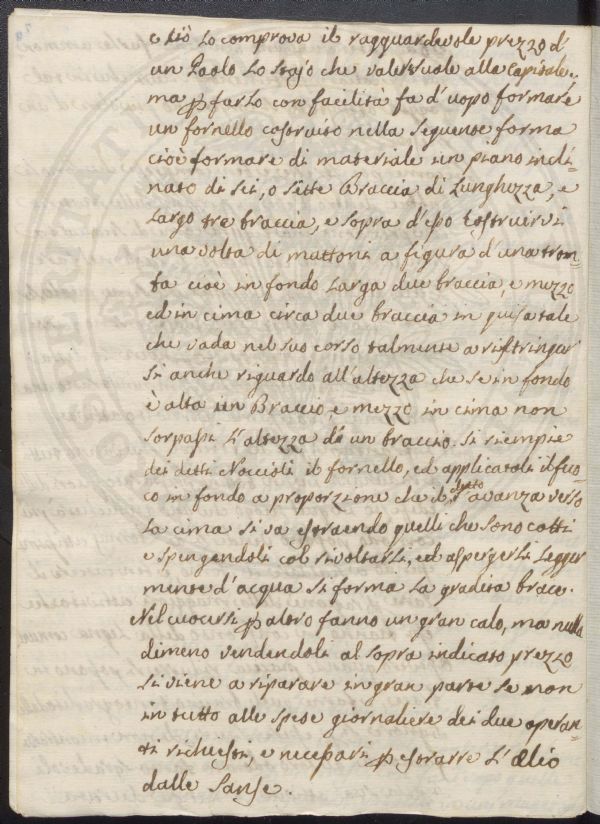 e ciò lo comprova il ragguardevole prezzo d'
un Paolo lo stajo che valersuole alla Capitale.
ma p farlo con facilità fa d'uopo formare
un fornello costruito nella seguente forma
cioè formare di materiale un piano incli-
nato di sei, o sette Braccia di Lunghezza, e
Largo tre braccia, e sopra d'esso Costruirvi
una volta di mattoni a figura d'una trom-
ba cioè in fondo Larga due braccia, e mezzo
ed in cima circa due braccia in guisa tale
che vada nel suo corso talmente a ristringer
si anche riguardo all'altezza che se in fondo
è alta un Braccio e mezzo in cima non
sorpassi L'altezza di un braccio. Si riempie
dei detti Noccioli il fornello, ed applicatoli il fuo-
co in fondo a proporzione che il detto avanza verso
La cima si va estraendo quelli che sono cotti
e spengendoli col rivoltarli, ed aspergerli Legger
mente d'acqua si forma La gradita brace.
Nel cuocersi p altro fanno un gran calo, ma nulla
dimeno vendendoli al sopra indicato prezzo
si viene a riparare in gran parte se non
in tutto alle spese giornaliere dei due operan-
ti richiesti, e necessari p estrarre L'olio
dalle Sanse.